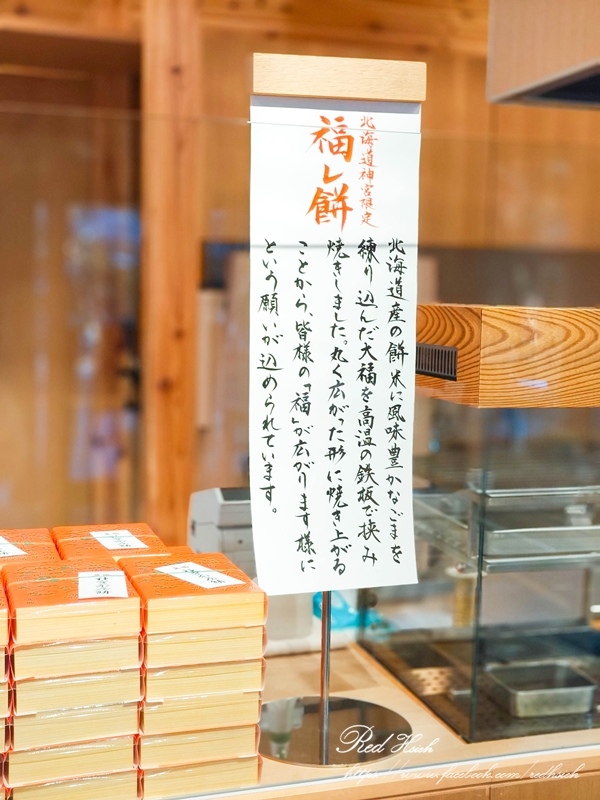 北海道神宮限定
福し餅
北海道産の餅米に風味豊かなごまを
練り込んだ大福を高温の鉄板で挟み
焼きしました。丸く広がった形に焼き上がる
ことから、皆様の「福」が広がります様に
という願いが込められています。
Red Hsieh
https://www.facebook.com/redhsieh